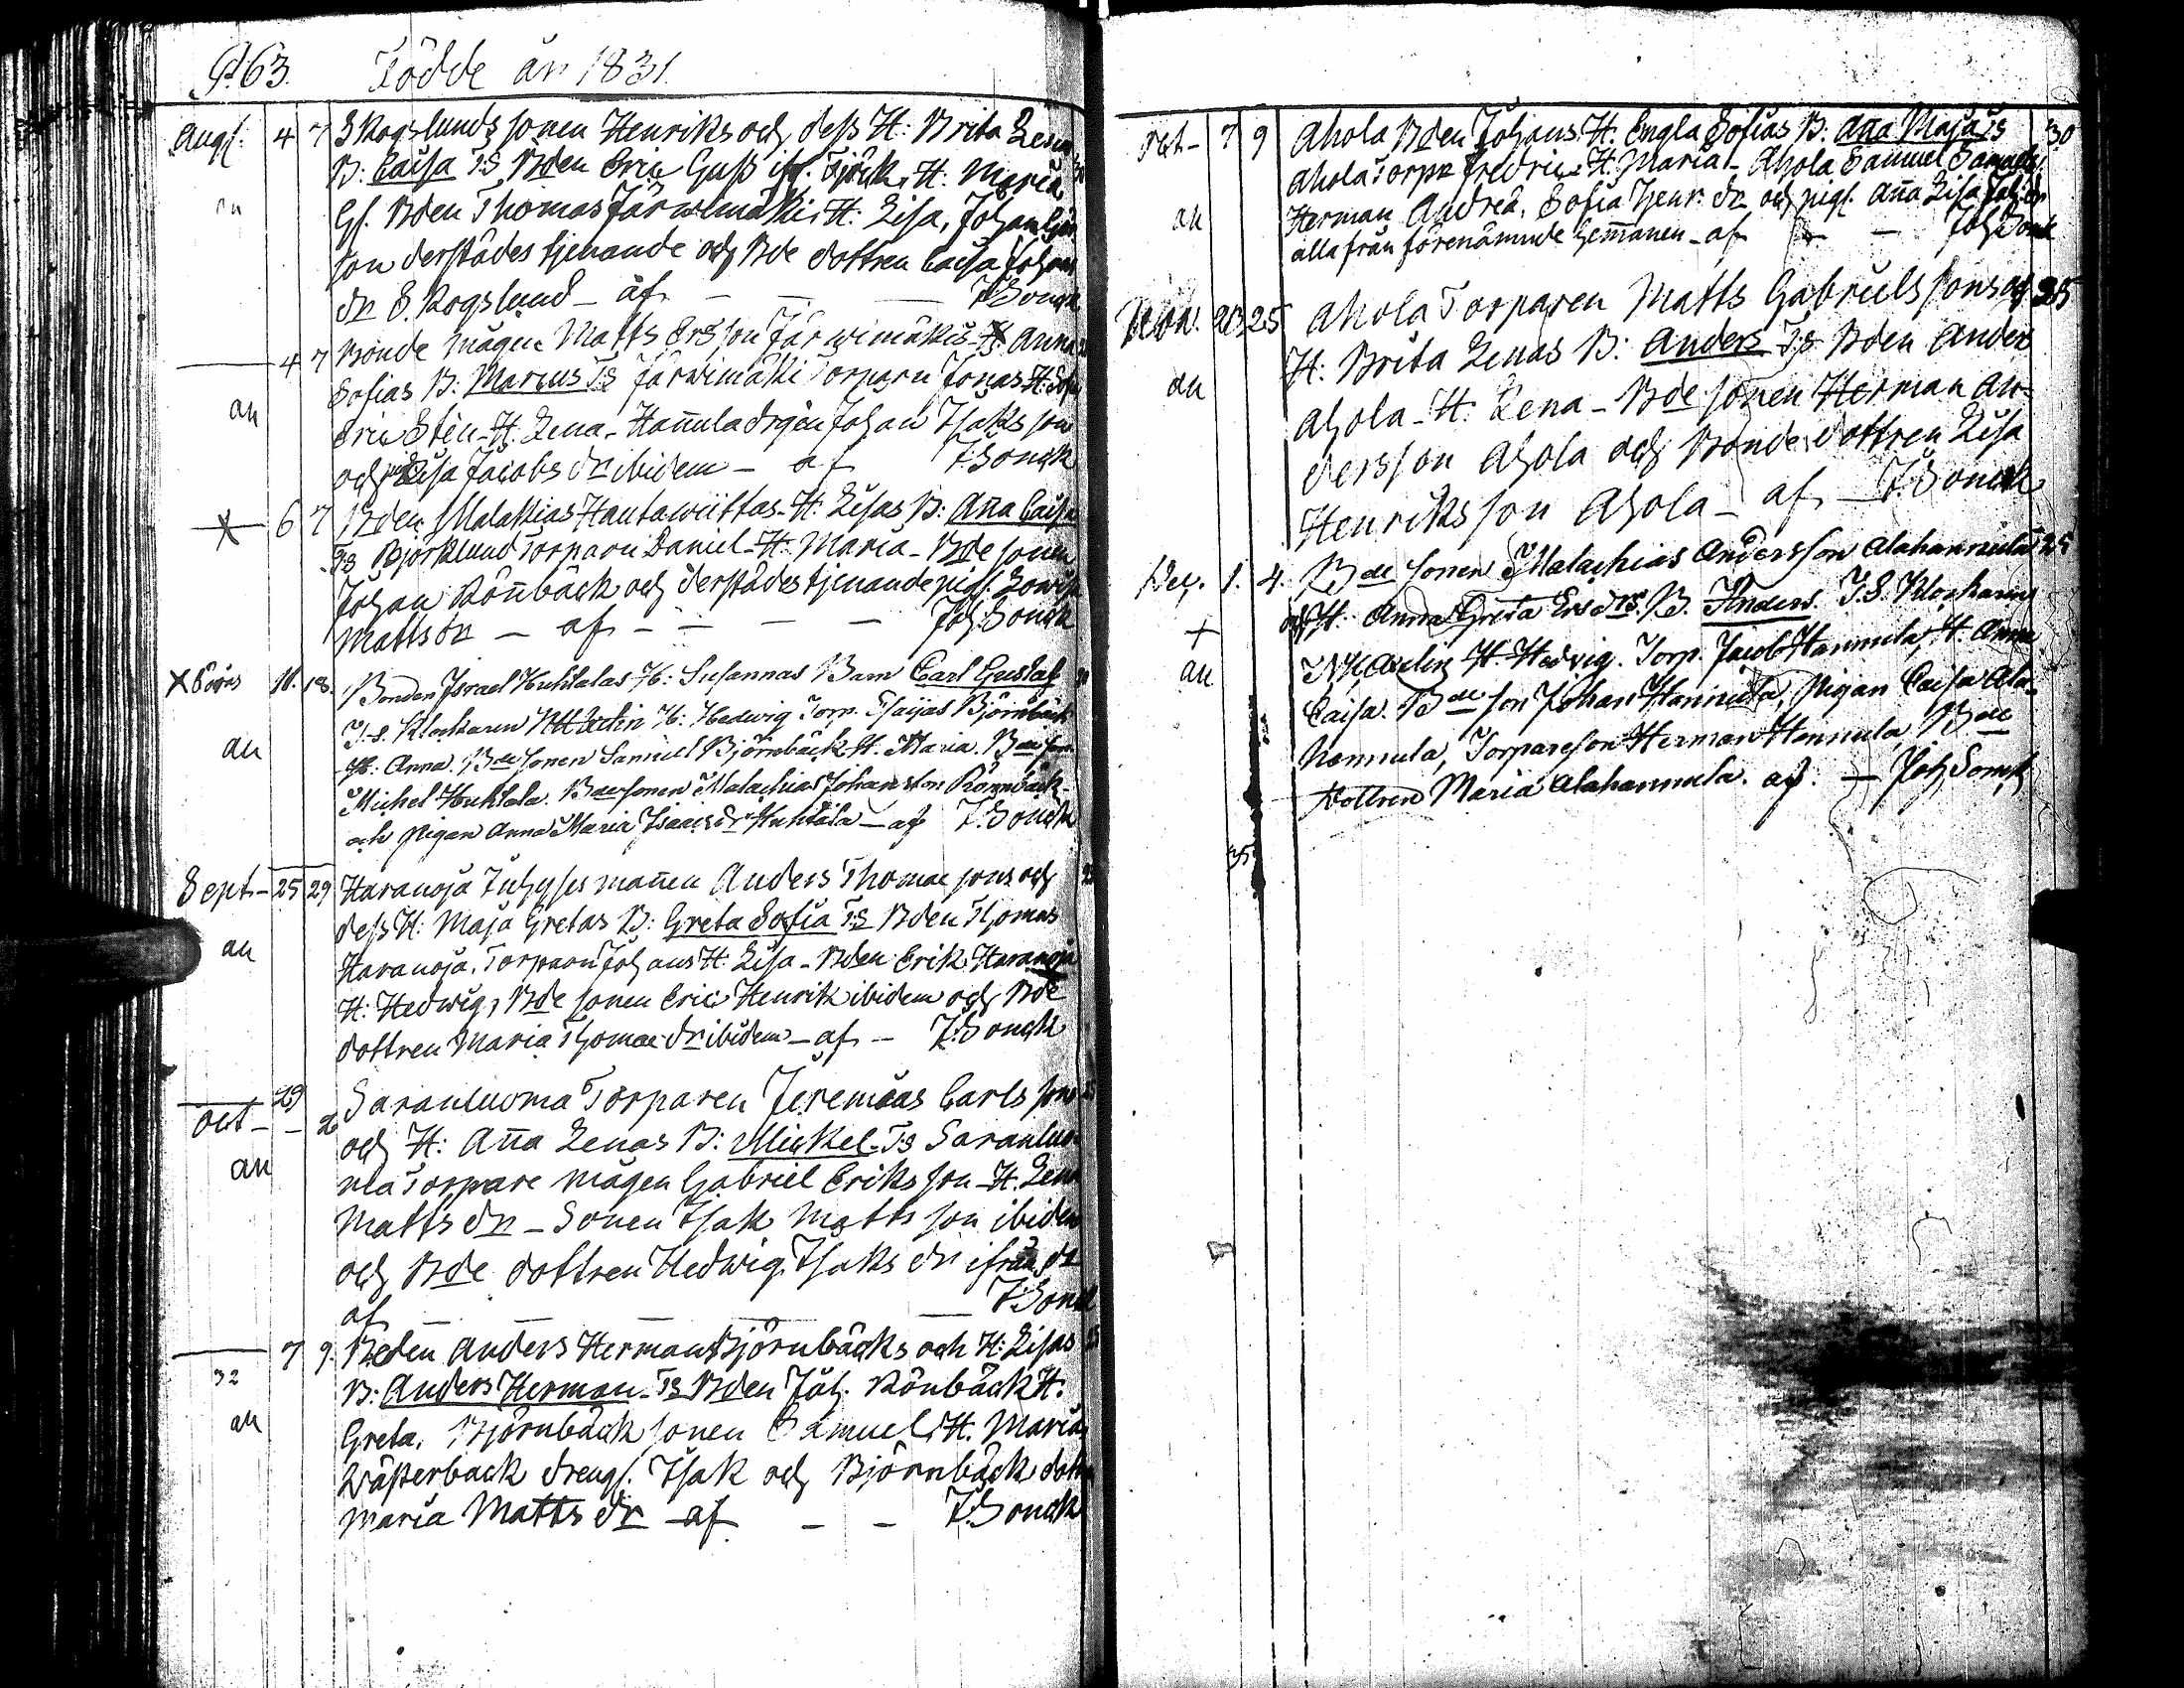 P. 63. Födde år 1831.
Aug. 4 7 Skogslunds sonen Henriks och dess H: Brita Lenas
B: Caisa T:S Bden Eric Gust if. Fjäck, H: Maria
Gf. Bden Thomas Järwimäki, H: Lisa, Johan
son derstädes tjenande och Bde dottren Caisa Johans
dr Skogslund – af – – – J:Sonck
4 7 Bonde mågen Matts Ersson Järwimäkis H. Anna
an
Sofias B: Marcus T:S Järwimäki Torparn Jonas H: Sofia
Eric Sten H. Lena – Hannula drgen Johan Isaks son
och Lisa Jacobs dr ibidem – af J:Sonck
X 6 7 Bden Malakias Hautawiittas – H: Lisas B: Anna Caisa
T:S Björklund Torparn Daniel – H: Maria – Bde sonen
Johan Rönnbäck och derstädes tjenande pig. Lowisa
Matts dr – af – – – – Joh: Sonck
X 11. 18. Bonden Israel Huhtalas H: Susannas Barn Carl Gustaf
T.S. Klockaren H: Hedwig Torp. Esaijas Björnbäck
an
H: Anna. Bde sonen Samuel Björnbäck H. Maria. Bde son
Michel Huhtala. Bdesonen Malachias Johansson Rönnbäck
och Pigan Anna Maria Isaacs dr Huhtala – af J:Sonck
Sept – 25 29 Haranoja Inhyses mannen Anders Thomae sons och
dess H: Maja Gretas B: Greta Sofia T:S Bden Thomas
an
Haranoja. Torparn Johans H: Lisa – Bden Erik Haranoja
H: Hedwig, Bde sonen Eric Henrik ibidem och Bde
dottren Maria Thomae dr ibidem – af – J:Sonck
29
Oct – – 2 Saranluoma Torparen Jeremias Carls sons
och H: Anna Lenas B: Mickel T:S Saranluo
an
ma Torpare mågen Gabriel Eriks son – H. Lena
Matts dr – Sonen Isak Matts son ibidem
och Bde dottren Hedwig Isaks dr ifrån do
af – – – – J:Sonck
7 9. Bden Anders Herman Björnbäcks och H: Lisas
32
B: Anders Herman T:S Bden Joh. Rönbäck H:
an
Greta, Björnbäck sonen Samuel, H. Maria,
Wästerback dreng. Isak och Björnbäck dottren
Maria Matts dr – af – – J:Sonck
Oct – 7 9 Ahola Bden Johans H. Engla Sofias B. Anna Maja T:S 30
Ahola Torpn Fredric H: Maria – Ahola Samuel Samuels
Herman Andreä, Sofia Henr. dr och pig. Anna Lisa Joh. dr
an
alla från förenämnde hemmanen – af – – Joh Sonck
Nov. 20 25 Ahola Torparen Matts Gabriels sons och 35
H: Brita Lenas B: Anders T:S Bden Anders
an
Ahola – H: Lena – Bde sonen Herman An-
dersson Ahola och Bonde dottren Lisa
Henriks son Ahola – af – J:Sonck
Dec. 1. 4. Bde sonen Malachias Andersson Alahannula 25
och H: Anna Greta Ers drs. B. Anders. T.S. Klockaren
+
H. Hedvig. Torp. Jacob Hannula, H. Anna
an
Caisa. Bde son Johan Hannula, Pigan Caisa Ala-
hannula, Torpareson Herman Hannula, Bde
dottren Maria Alahannula. af. – Joh Sonck
35